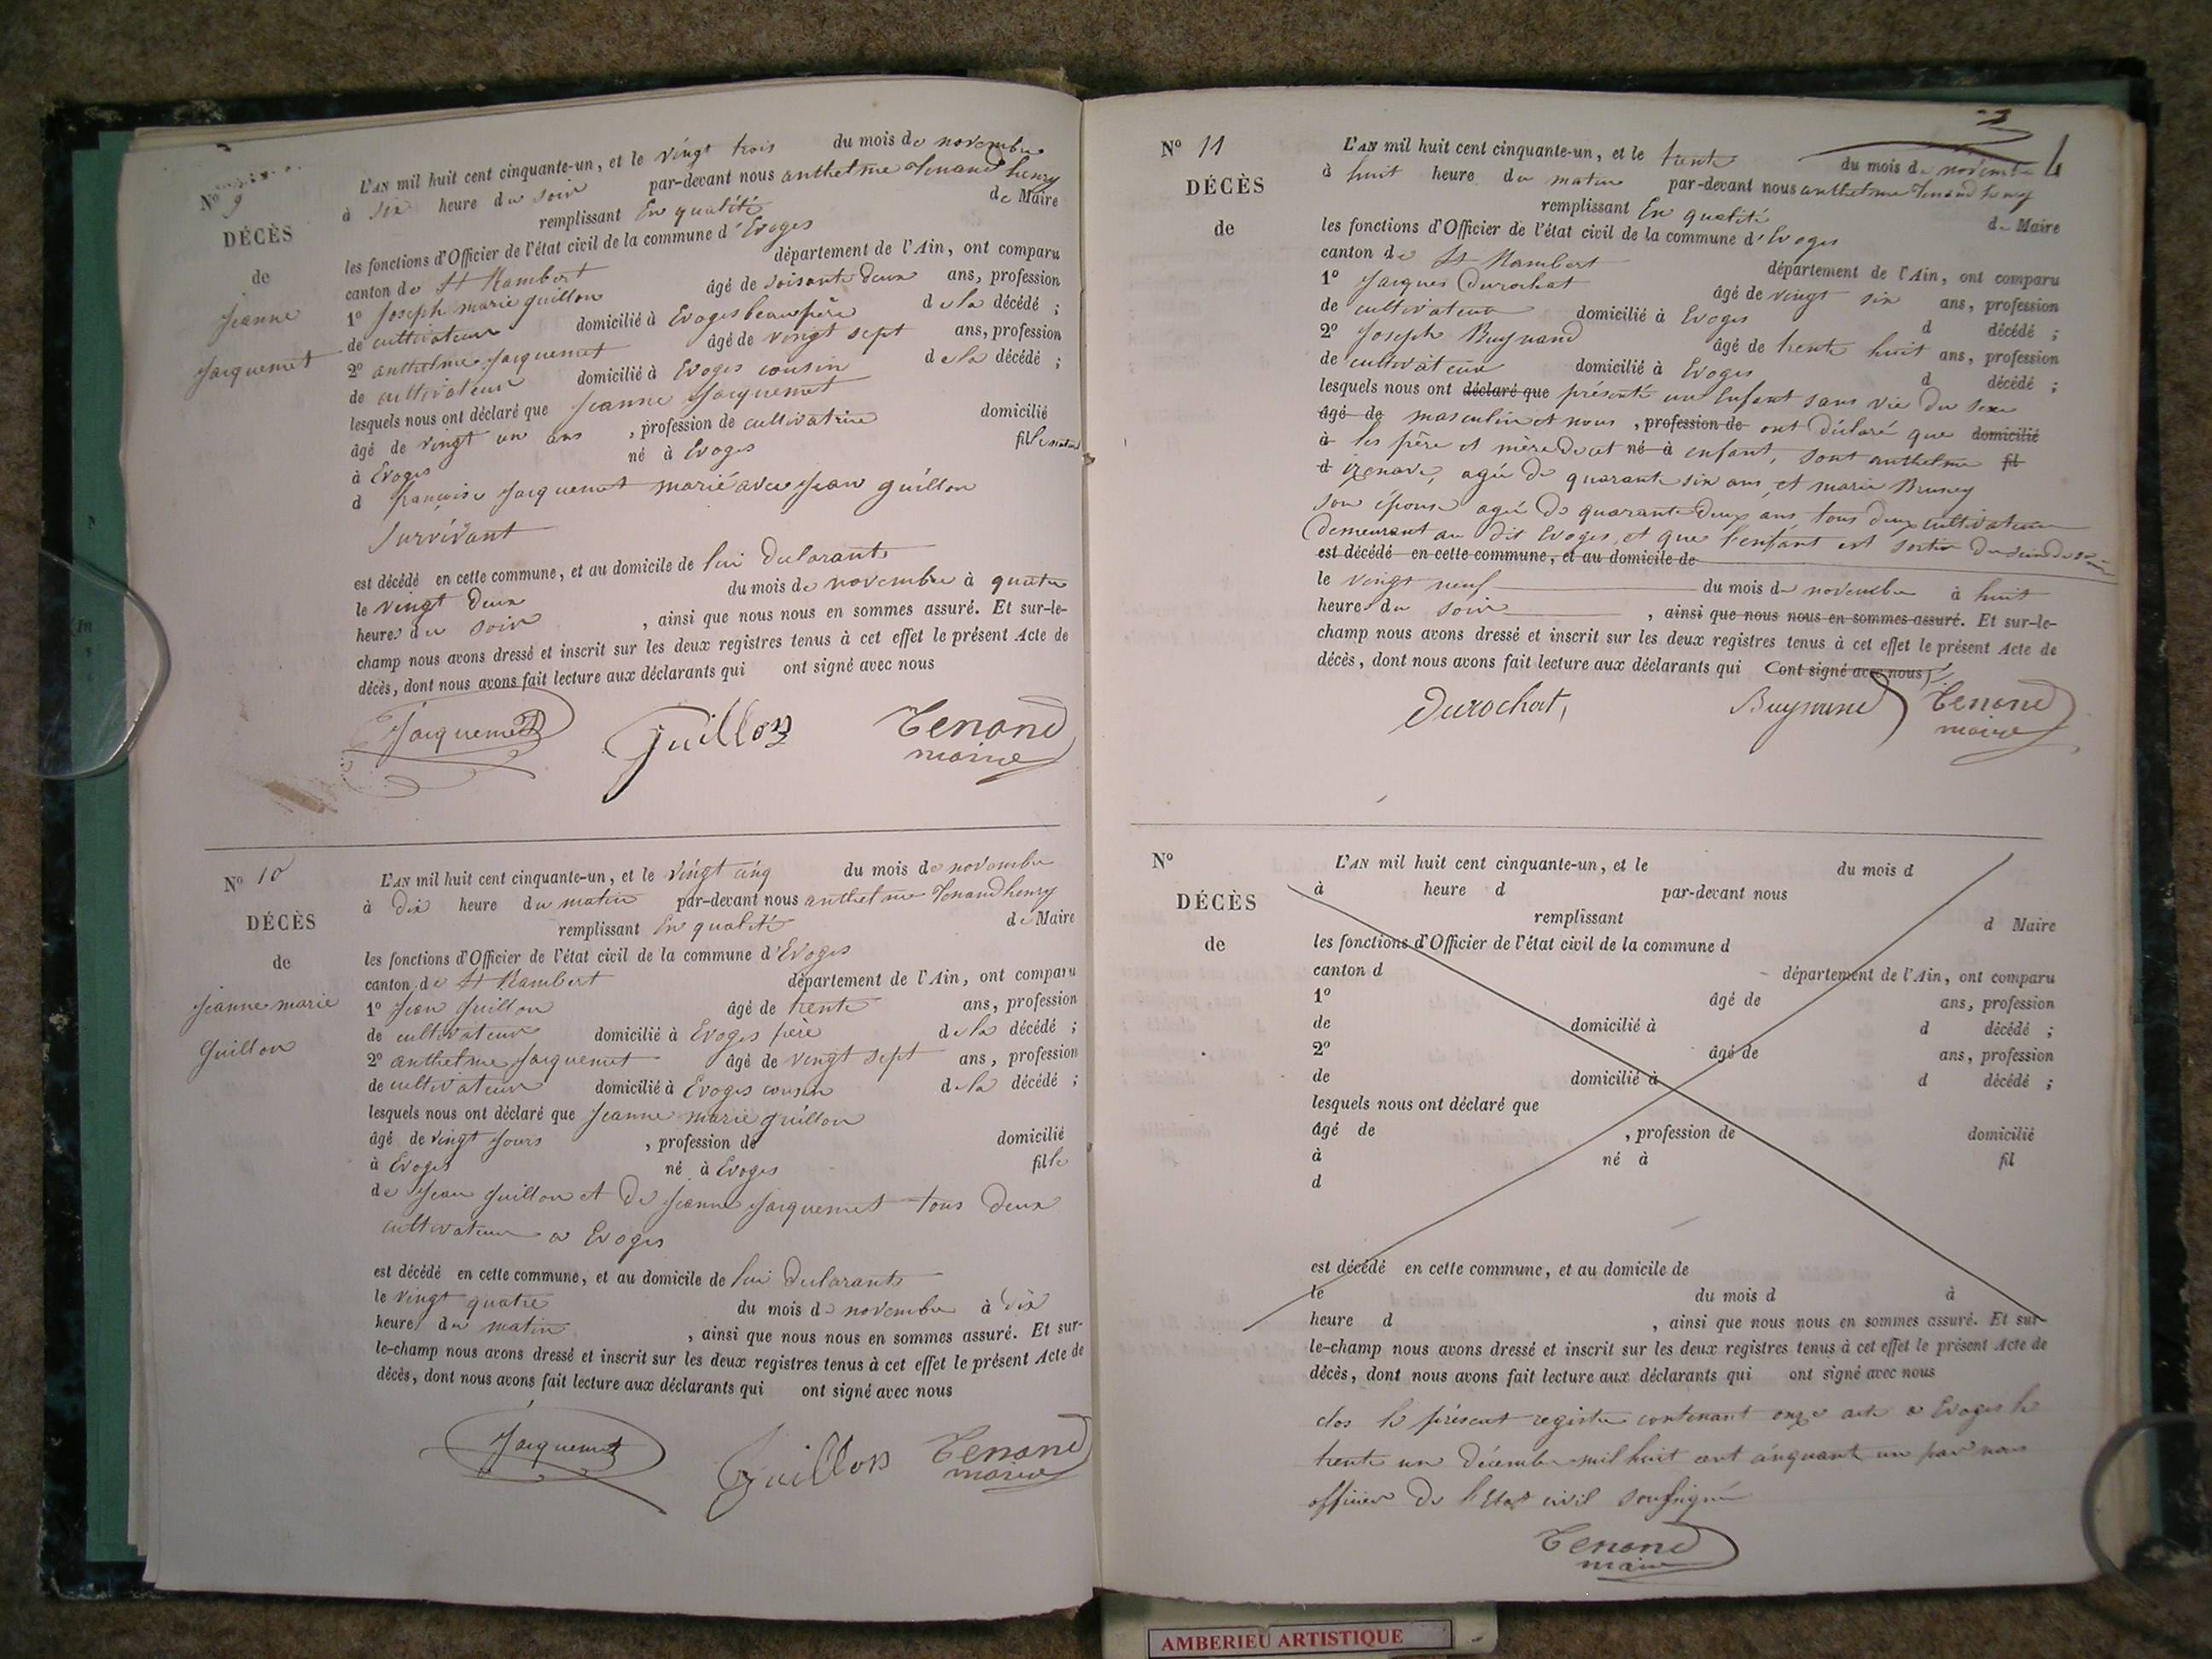 N° 9
DÉCÈS
de
Jeanne
Jacquemet
L'AN mil huit cent cinquante-un, et le vingt trois du mois de novembre
à six heure du soir par-devant nous anthelme Tenand henry
remplissant En qualité de Maire
les fonctions d'Officier de l'état civil de la commune d'Evoges
canton de St Rambert département de l'Ain, ont comparu
1° Joseph marie guillon âgé de soisante deux ans, profession
de cultivateur domicilié à Evoges beaupère de la décédé ;
2° anthelme Jacquemet âgé de vingt sept ans, profession
de cultivateur domicilié à Evoges cousin de la décédé ;
lesquels nous ont déclaré que Jeanne Jacquemet
âgé de vingt un ans , profession de cultivatrice domicilié
à Evoges né à Evoges fille
d françoise Jacquemet marié avec Jean guillon
Survivant
est décédé en cette commune, et au domicile de lui declarant
le vingt deux du mois de novembre à quatre
heures du soir , ainsi que nous nous en sommes assuré. Et sur-le-
champ nous avons dressé et inscrit sur les deux registres tenus à cet effet le présent Acte de
décès, dont nous avons fait lecture aux déclarants qui ont signé avec nous
Jacquemet Guillon Tenand
maire
N° 10
DÉCÈS
de
Jeanne marie
Guillon
L'AN mil huit cent cinquante-un, et le vingt cinq du mois de novembre
à dix heure du matin par-devant nous anthelme Tenand henry
remplissant En qualité de Maire
les fonctions d'Officier de l'état civil de la commune d'Evoges
canton de St Rambert département de l'Ain, ont comparu
1° Jean Guillon âgé de trente ans, profession
de cultivateur domicilié à Evoges père de la décédé ;
2° anthelme Jacquemet âgé de vingt sept ans, profession
de cultivateur domicilié à Evoges cousin de la décédé ;
lesquels nous ont déclaré que Jeanne marie guillon
âgé de vingt Jours , profession de domicilié
à Evoges né à Evoges fille
de Jean Guillon et De Jeanne Jacquemet tous Deux
cultivateur a Evoges
est décédé en cette commune, et au domicile de lui declarant
le vingt quatre du mois de novembre à dix
heures du matin , ainsi que nous nous en sommes assuré. Et sur-
le-champ nous avons dressé et inscrit sur les deux registres tenus à cet effet le présent Acte de
décès, dont nous avons fait lecture aux déclarants qui ont signé avec nous
Jacquemet Guillon Tenand
maire
N° 11
DÉCÈS
de
L'AN mil huit cent cinquante-un, et le trente du mois de novembre
à huit heure du matin par-devant nous anthelme Tenand henry
remplissant En qualité de Maire
les fonctions d'Officier de l'état civil de la commune d'Evoges
canton de St Rambert département de l'Ain, ont comparu
1° Jacques Durochat âgé de vingt six ans, profession
de cultivateur domicilié à Evoges d décédé ;
2° Joseph Buynand âgé de trente huit ans, profession
de cultivateur domicilié à Evoges d décédé ;
lesquels nous ont déclaré que présenté un Enfant sans vie du sexe
âgé de masculin et nous , profession de ont déclaré que domicilié
à les père et mère de cet né à enfant, sont anthelme fil
d agée de quarante six ans, et marie
son épouse agée de quarante Deux ans, tous deux cultivateur
Demeurant au dit Evoges, et que l'enfant est sortis du sein de sa
est décédé en cette commune, et au domicile de
le vingt neuf du mois de novembre à huit
heures du soir , ainsi que nous nous en sommes assuré. Et sur-le-
champ nous avons dressé et inscrit sur les deux registres tenus à cet effet le présent Acte de
décès, dont nous avons fait lecture aux déclarants qui ont signé avec nous
Durochat, Buynand Tenand
maire
N°
DÉCÈS
de
L'AN mil huit cent cinquante-un, et le du mois d
à heure d par-devant nous
remplissant d Maire
les fonctions d'Officier de l'état civil de la commune d
canton d département de l'Ain, ont comparu
1° âgé de ans, profession
de domicilié à d décédé ;
2° âgé de ans, profession
de domicilié à d décédé ;
lesquels nous ont déclaré que
âgé de , profession de domicilié
à né à fil
d
est décédé en cette commune, et au domicile de
le du mois d à
heure d , ainsi que nous nous en sommes assuré. Et sur-
le-champ nous avons dressé et inscrit sur les deux registres tenus à cet effet le présent Acte de
décès, dont nous avons fait lecture aux déclarants qui ont signé avec nous
clos le présent registre contenant onze acte a Evoges le
trente un décembre mil huit cent cinquante un par nous
officier De l'Etat civil Soussigné
Tenand
maire
AMBERIEU ARTISTIQUE